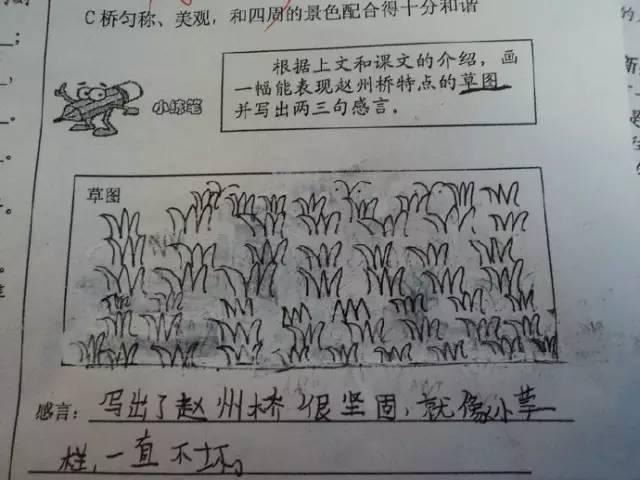 C桥匀称、美观，和四周的景色配合得十分和谐
小练笔
根据上文和课文的介绍，画
一幅能表现赵州桥特点的草图
并写出两三句感言。
草图
感言：写出了赵州桥很坚固，就像小草一
样，一直不坏。